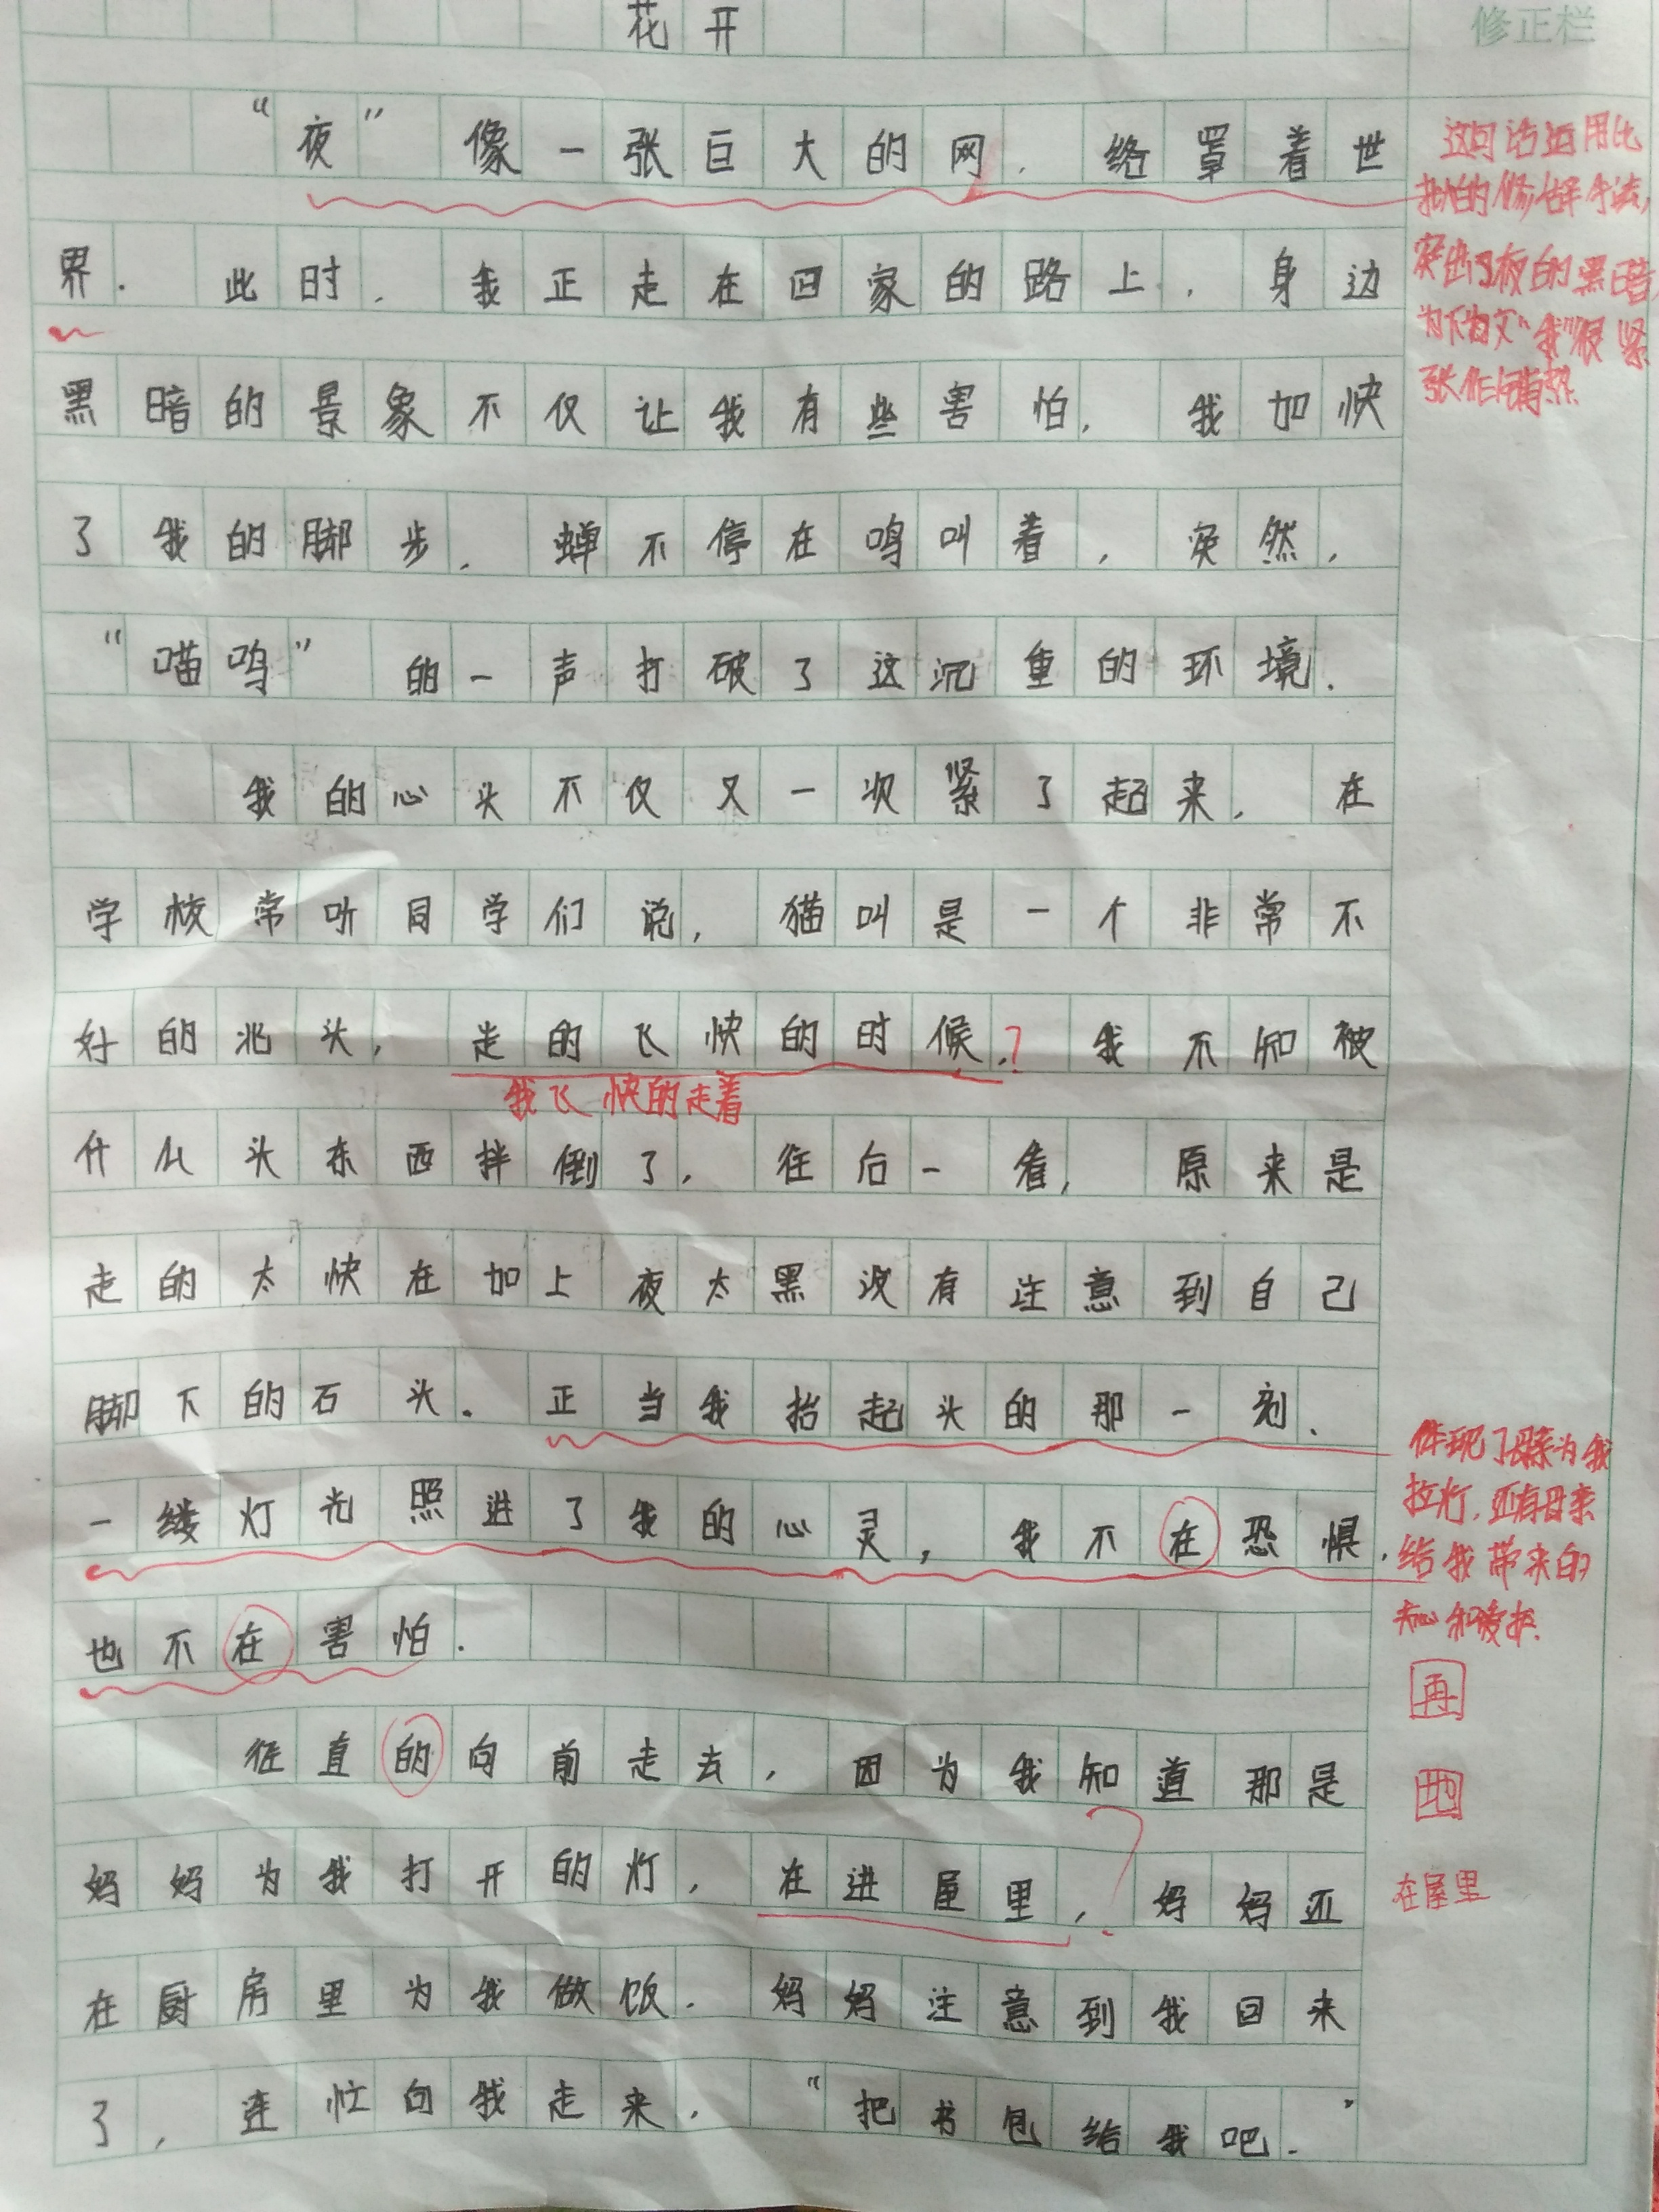 花开
修正栏
“夜”像一张巨大的网.络罩着世
界.此时,我正走在回家的路上,身边
黑暗的景象不仅让我有些害怕,我加快
了我的脚步.蝉不停在鸣叫着,突然,
“喵呜”的一声打破了这沉重的环境.
我的心头不仅又一次紧了起来,在
学校常听同学们说,猫叫是一个非常不
好的兆头,走的飞快的时候.?我不知被
我飞快的走着
什么头东西拌倒了,往后一看,原来是
走的太快在加上夜太黑没有注意到自己
脚下的石头.正当我抬起头的那一刻.
一缕灯光照进了我的心灵,我不在恐惧,
也不在害怕.
径直的向前走去,因为我知道那是
妈妈为我打开的灯,在进屋里,?妈妈还
在厨房里为我做饭.妈妈注意到我回来
了,连忙向我走来,“把书包给我吧.”
这句话运用比
拟的修辞手法,
突出了夜的黑暗,
为下文“我”很紧
张作铺垫.
体现了母亲为我
拉灯,还有母亲
给我带来的
关心和爱护.
再
地
在屋里